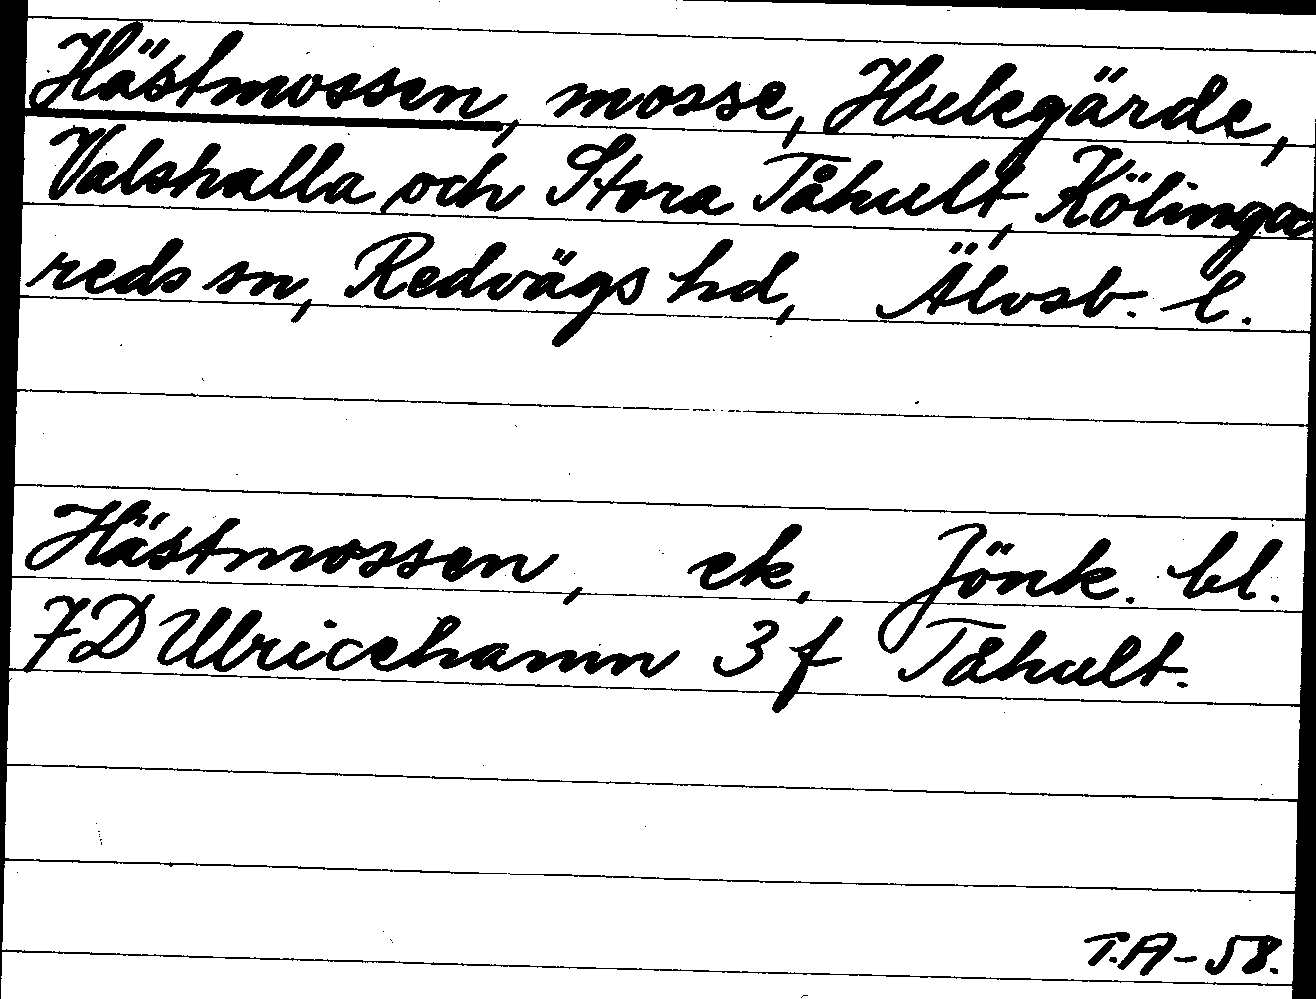 Hästmossen, mosse, Hulegärde,
Valshalla och Stora Tåhult, Kölinga
reds sn, Redvägs hd, Älvsb. l.
Hästmossen, ek, Jönk. bl.
7D Ulricehamn 3 f Tåhult.
T.A-58.